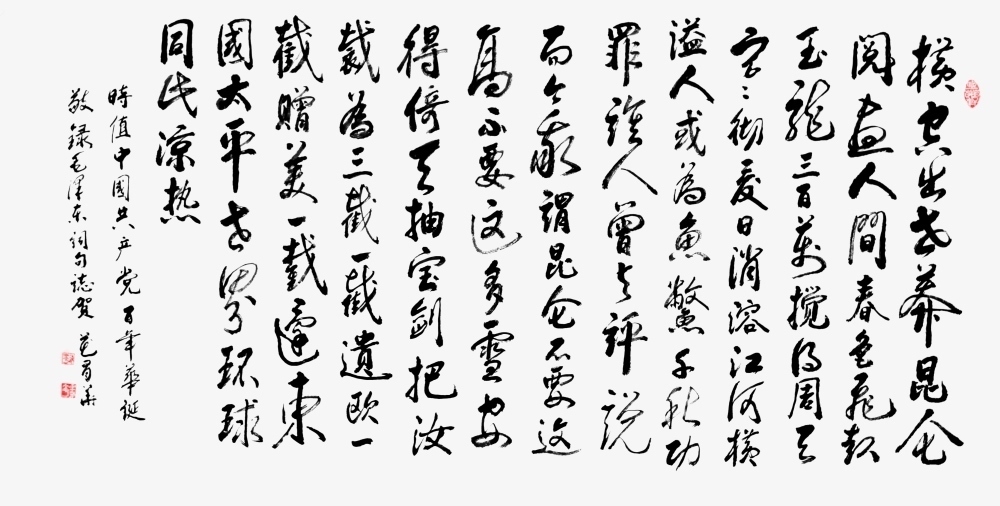 横空出世莽昆仑
閱尽人間春色飛起
玉龍三百萬攪得周天
寒彻夏日消溶江河横
溢人或為魚鱉千秋功
罪誰人曾与評説
而今我謂昆仑不要这
高不要这多雪安
得倚天抽宝劍把汝
裁為三截一截遺欧一
截贈美一截還東
國太平世界环球
同此凉热
時值中國共产党百年華诞
敬録毛澤东詞句誌賀